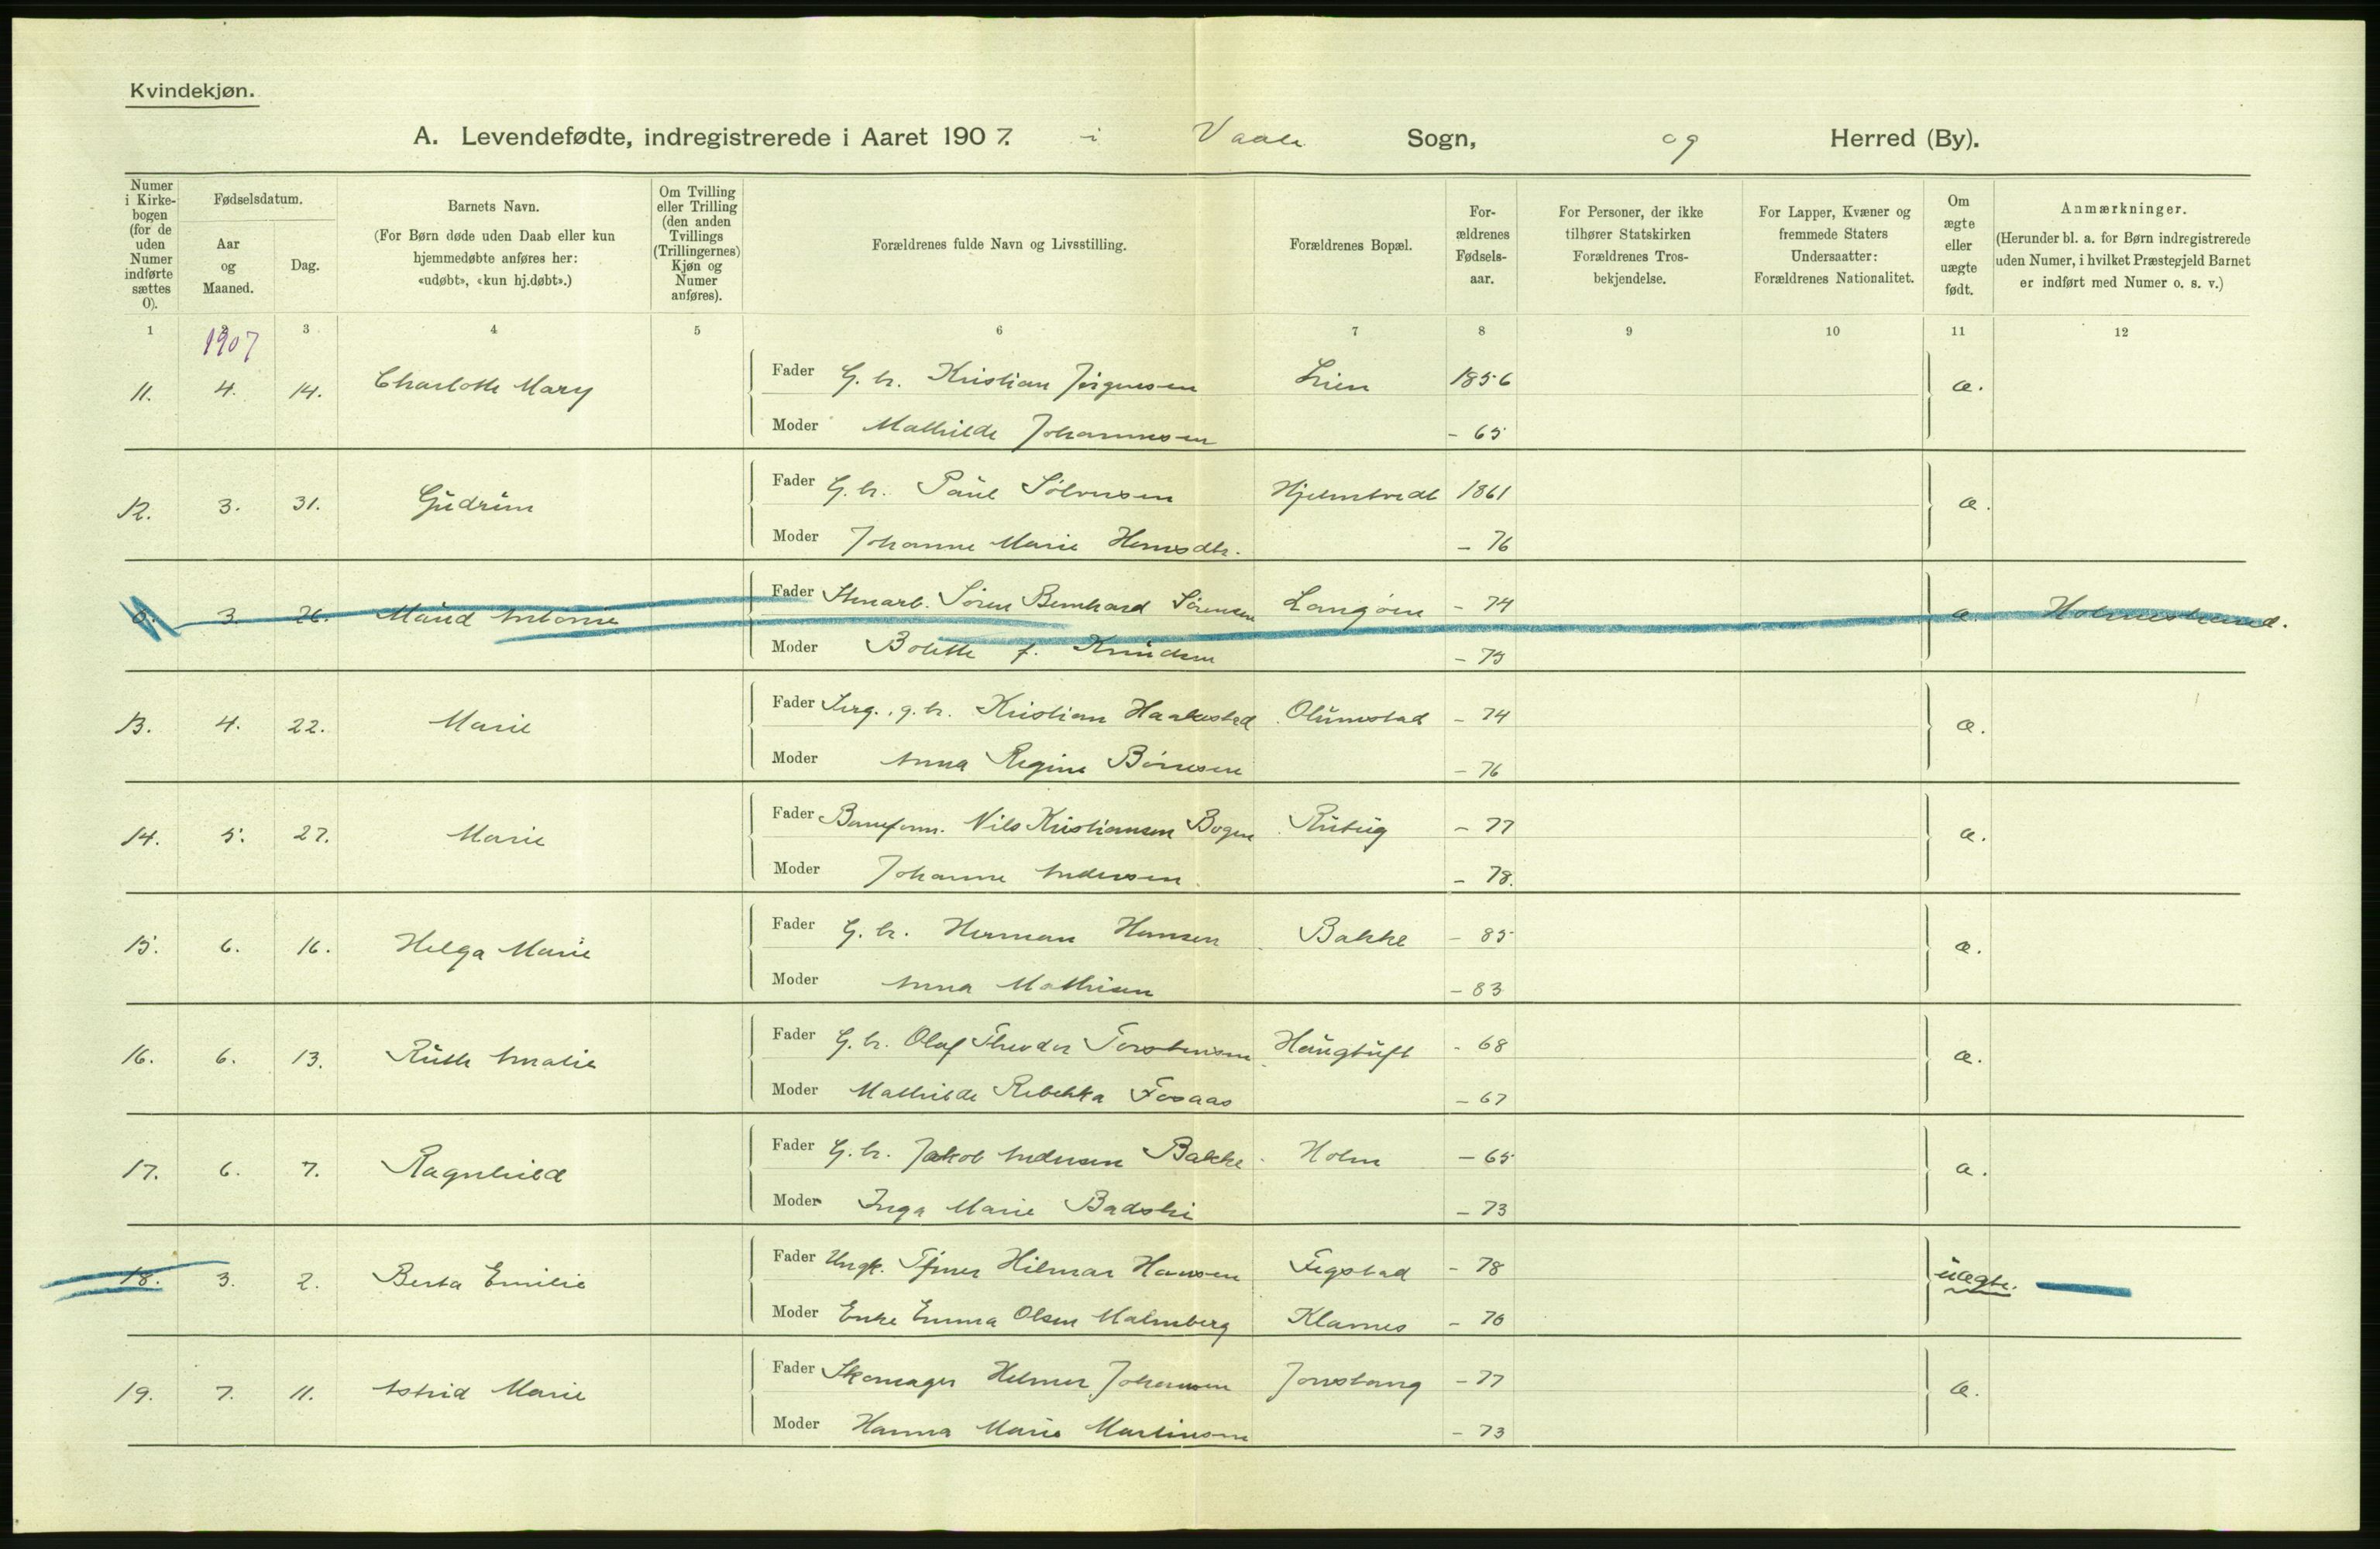 Kvindekjøn.
A. Levendefødte, indregistrerede i Aaret 1907. i Vaale Sogn, og Herred (By).
Numer i Kirkebogen (for de uden Numer indførte sættes 0).
Fødselsdatum.
Aar og Maaned.
Dag.
Barnets Navn.
(For Børn døde uden Daab eller kun hjemmedøbte anføres her: «udøbt», «kun hj.døbt».)
Om Tvilling eller Trilling (den anden Tvillings (Trillingernes) Kjøn og Numer anføres).
Forældrenes fulde Navn og Livsstilling.
Forældrenes Bopæl.
For-ældrenes Fødsels-aar.
For Personer, der ikke tilhører Statskirken Forældrenes Tros-bekjendelse.
For Lapper, Kvæner og fremmede Staters Undersaatter: Forældrenes Nationalitet.
Om ægte eller uægte født.
Anmærkninger.
(Herunder bl. a. for Børn indregistrerede uden Numer, i hvilket Præstegjeld Barnet er indført med Numer o. s. v.)
1 2 3 4 5 6 7 8 9 10 11 12
1907
11. 4. 14. Charlotte Mary Fader G. br. Kristian Jørgensen Lien 1856 æ.
Moder Mathilde Johannesen - 65
12. 3. 31. Gudrun Fader G. br. Paul Sølvesen Hjelmtvedt 1861 æ.
Moder Johanne Marie Hansdtr. - 76
0. 3. 26. Maud Antonie Fader Stenarb. Søren Bernhard Sørensen Langøen - 74 æ. Holmestrand.
Moder Bolette f. Knudsen - 75
13. 4. 22. Marie Fader Serg., g. br. Kristian Haakestad Olumstad - 74 æ.
Moder Anna Regine Børresen - 76
14. 5. 27. Marie Fader Baneform. Nils Kristiansen Bogen - 77 æ.
Moder Johanne Andersen - 78.
15. 6. 16. Helga Marie Fader G. br. Herman Hansen Bakke - 85 æ.
Moder Anna Mathisen - 83
16. 6. 13. Ruth Amalie Fader G. br. Olaf Theodor Torstensen Haugtuft - 68 æ.
Moder Mathilde Rebekka Fosaas - 67
17. 6. 7. Ragnhild Fader G. br. Jakob Andersen Bakke Holm - 65 æ.
Moder Inga Marie Badski - 73
18. 3. 2. Berta Emilie Fader Ungk. Hilmar Hansen Fegstad - 78 uægte.
Moder Enke Emma Olsen Malmberg Klarnes - 70
19. 7. 11. Astrid Marie Fader Skomager Helmer Johansen Jonstang - 77 æ.
Moder Hanna Marie Martinsen - 73